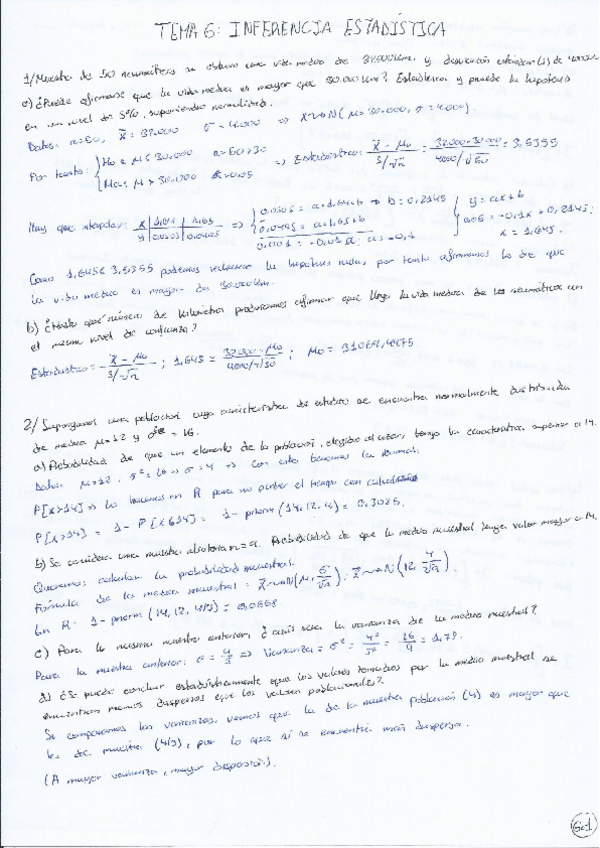 TEMA 6: INFERENCIA ESTADÍSTICA
1/ Muestra de 50 neumáticos se obtuvo una vida media de 32.000 km. y desviación estándar (s) de 4000 km
a) ¿Puede afirmarse que la vida media es mayor que 30.000 km? Establezca y pruebe la hipótesis
en un nivel de 5%, suponiendo normalidad.
Datos: n=50, x̄ = 32.000 σ = 4.000 ⇒ X~N(μ = 30.000, σ = 4.000)
Por tanto: { H₀ : μ ≤ 30.000 n=50>30 ⇒ Estadístico: x̄ - μ₀ / s/√n = 32.000-30.000 / 4000/√50 = 3,5355
μ > 30.000 α=0.05
Hay que interpolar: x | 1,64 | 1,65 ⇒ { 0,0505 = a·1,64+b ⇒ b = 0,2145 { y = ax+b
y | 0,0505 | 0,0495 0,0495 = a·1,65+b 0,05 = -0,1x + 0,2145;
0,001 = -0,01a; a = -0,1 x = 1,645.
Como 1,645 < 3,5355 podemos rechazar la hipótesis nula, por tanto afirmamos lo de que
la vida media es mayor de 30.000 km.
b) ¿Hasta qué número de kilómetros podríamos afirmar que llega la vida media de los neumáticos con
el mismo nivel de confianza?
Estadístico = x̄ - μ₀ / s/√n ; 1,645 = 32.000 - μ₀ / 4000/√50 ; μ₀ = 31069,4675
2/ Supongamos una población cuya característica de estudio se encuentra normalmente distribuida
de media μ=12 y σ² = 16.
a) Probabilidad de que un elemento de la población, elegido al azar, tenga la característica superior a 14.
Datos: μ=12, σ² = 16 ⇒ σ = 4 ⇒ Con esto hacemos la normal.
P[x>14] ⇒ Lo hacemos en R para no perder el tiempo con
P[x>14] = 1 - P[x≤14] = 1 - pnorm(14,12,4) = 0,3085.
b) Se considera una muestra aleatoria n=9. Probabilidad de que la media muestral tenga valor mayor a 14.
Queremos calcular la probabilidad muestral.
Fórmula de la media muestral = x̄~N(μ, σ/√n) : x̄~N(12, 4/√9).
En R: 1 - pnorm(14,12,4/3) = 0,0668
c) Para la misma muestra anterior, ¿cuál será la varianza de la media muestral?
Para la muestra anterior: σ = 4/3 ⇒ Varianza = σ² = 4²/3² = 16/9 = 1,78.
d) ¿Se puede concluir estadísticamente que los valores tomados por la media muestral se
encuentran menos dispersos que los valores poblacionales?
Si comparamos las varianzas, vemos que la de la nuestra población (4) es mayor que
la de muestra (4/3), por lo que sí se encuentra más dispersa.
(A mayor varianza, mayor dispersión).
6.1